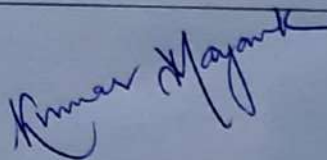 Kumar Mayank